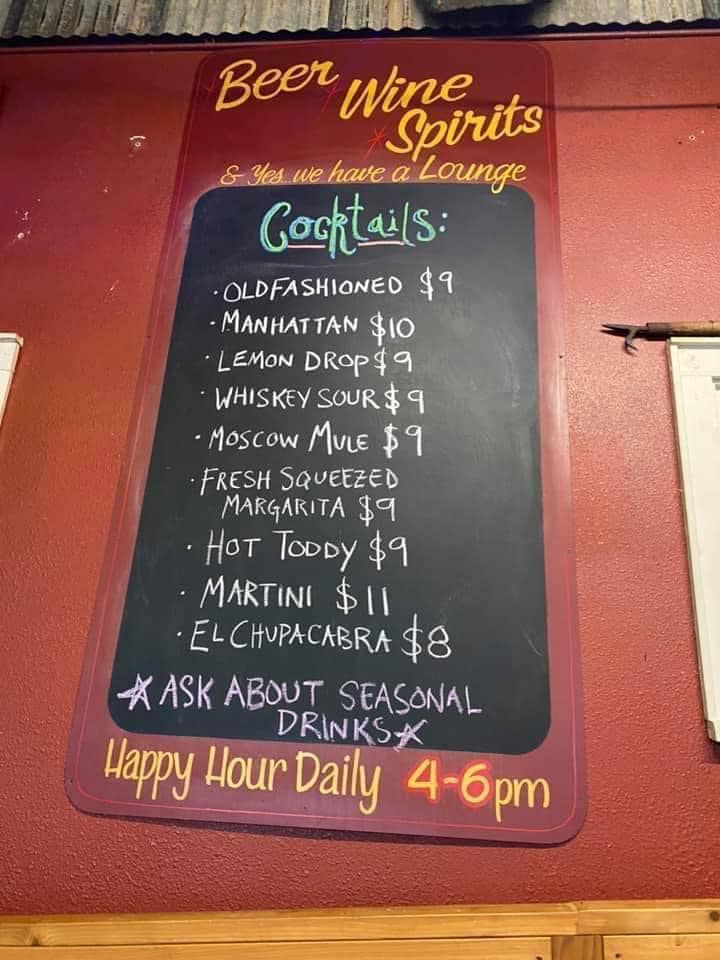 Beer Wine
Spirits
& Yes.. we have a Lounge
Cocktails:
· OLDFASHIONED $9
· MANHATTAN $10
· LEMON DROP $9
· WHISKEY SOUR $9
· MOSCOW MULE $9
· FRESH SQUEEZED
MARGARITA $9
· HOT TODDY $9
· MARTINI $11
· EL CHUPACABRA $8
☆ ASK ABOUT SEASONAL
DRINKS ☆
Happy Hour Daily 4-6pm